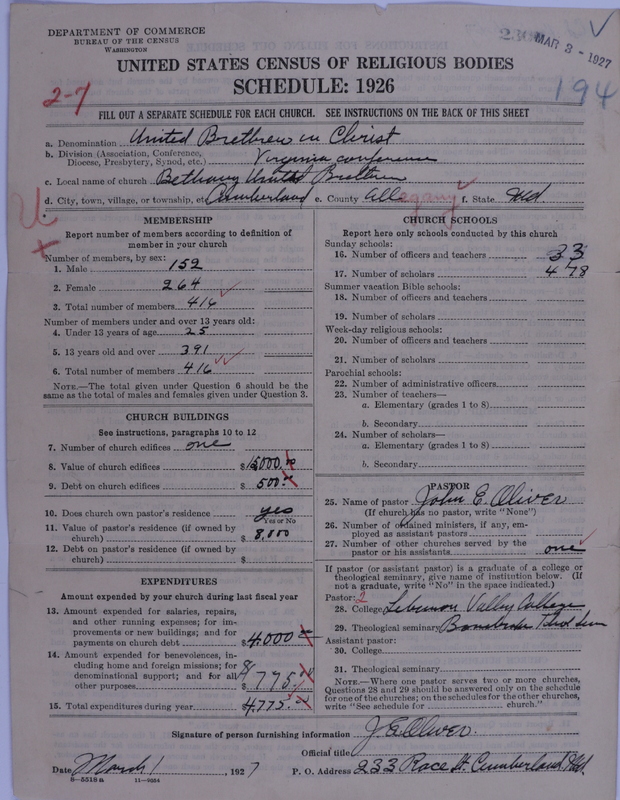 DEPARTMENT OF COMMERCE
BUREAU OF THE CENSUS
WASHINGTON
MAR 3 - 1927
UNITED STATES CENSUS OF RELIGIOUS BODIES
SCHEDULE: 1926
2-7
194
FILL OUT A SEPARATE SCHEDULE FOR EACH CHURCH. SEE INSTRUCTIONS ON THE BACK OF THIS SHEET
a. Denomination United Brethren in Christ
b. Division (Association, Conference, Diocese, Presbytery, Synod, etc.) Virginia conference
c. Local name of church Bethany United Brethren
d. City, town, village, or township, etc. Cumberland e. County Allegany f. State Md
MEMBERSHIP
Report number of members according to definition of
member in your church
Number of members, by sex:
1. Male 152
2. Female 264
3. Total number of members 416
Number of members under and over 13 years old:
4. Under 13 years of age 25
5. 13 years old and over 391
6. Total number of members 416
NOTE.—The total given under Question 6 should be the
same as the total of males and females given under Question 3.
CHURCH BUILDINGS
See instructions, paragraphs 10 to 12
7. Number of church edifices one
8. Value of church edifices $15000.00
9. Debt on church edifices $500.00
10. Does church own pastor's residence yes
Yes or No
11. Value of pastor's residence (if owned by
church) $8,000
12. Debt on pastor's residence (if owned by
church) $
EXPENDITURES
Amount expended by your church during last fiscal year
13. Amount expended for salaries, repairs,
and other running expenses; for im-
provements or new buildings; and for
payments on church debt $4.000
14. Amount expended for benevolences, in-
cluding home and foreign missions; for
denominational support; and for all
other purposes $775.
15. Total expenditures during year 4.775.
CHURCH SCHOOLS
Report here only schools conducted by this church
Sunday schools:
16. Number of officers and teachers 33
17. Number of scholars 478
Summer vacation Bible schools:
18. Number of officers and teachers
19. Number of scholars
Week-day religious schools:
20. Number of officers and teachers
21. Number of scholars
Parochial schools:
22. Number of administrative officers
23. Number of teachers—
a. Elementary (grades 1 to 8)
b. Secondary
24. Number of scholars—
a. Elementary (grades 1 to 8)
b. Secondary
PASTOR
25. Name of pastor John E. Oliver
(If church has no pastor, write "None")
26. Number of ordained ministers, if any, em-
ployed as assistant pastors
27. Number of other churches served by the
pastor or his assistants one
If pastor (or assistant pastor) is a graduate of a college or
theological seminary, give name of institution below. (If
not a graduate, write "No" in the space indicated.)
Pastor: 2
28. College Lebanon Valley College
29. Theological seminary Bonebrake Theol Sem
Assistant pastor:
30. College
31. Theological seminary
NOTE.—Where one pastor serves two or more churches,
Questions 28 and 29 should be answered only on the schedule
for one of the churches; on the schedules for the other churches,
write "See schedule for church."
Signature of person furnishing information J. E. Oliver.
Official title
Date March 1, 1927 P. O. Address 233 Race St. Cumberland Md.
8-5518a 11-9054